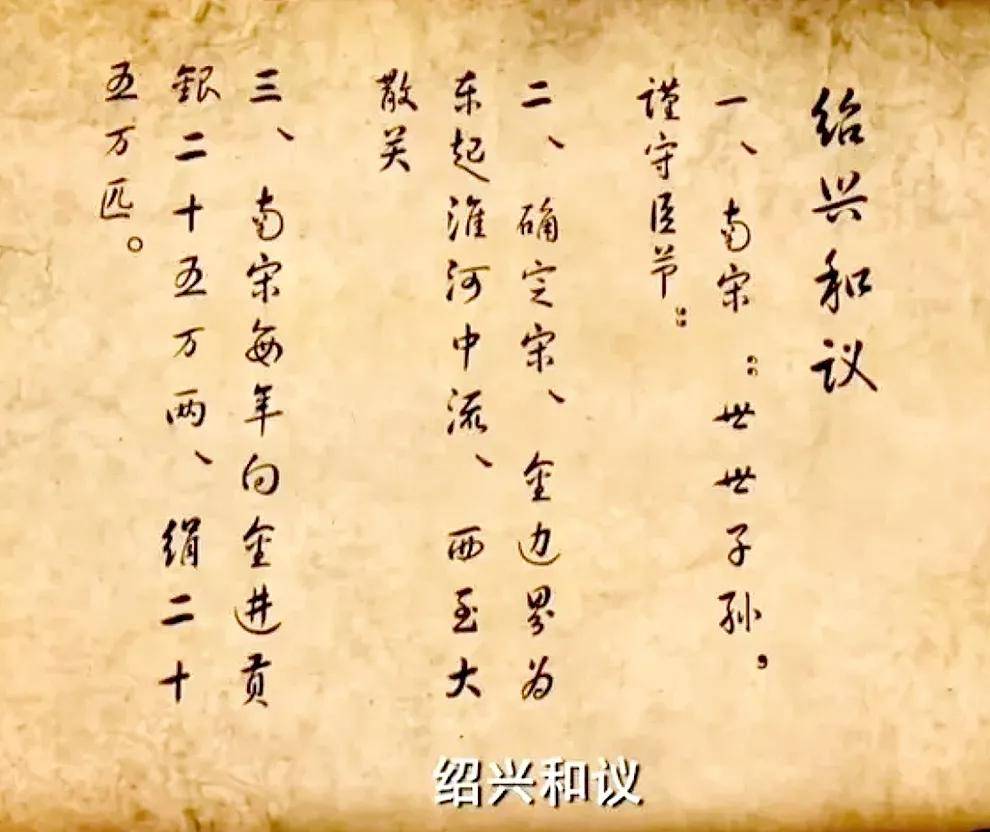 绍兴和议
一、南宋:世世子孙,
谨守臣节:
二、确定宋、金边界为
东起淮河中流、西至大
散关
三、南宋每年向金进贡
銀二十五万两、绢二十
五万匹。
绍兴和议